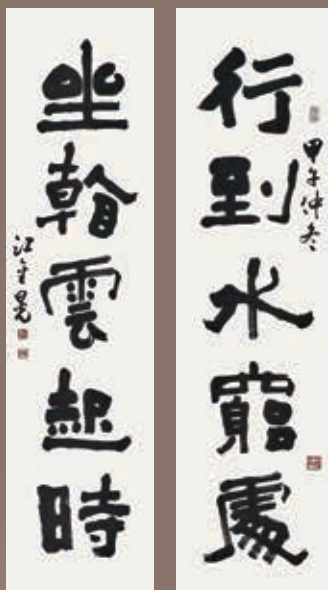 行到水窮處
甲午仲冬
坐看雲起時